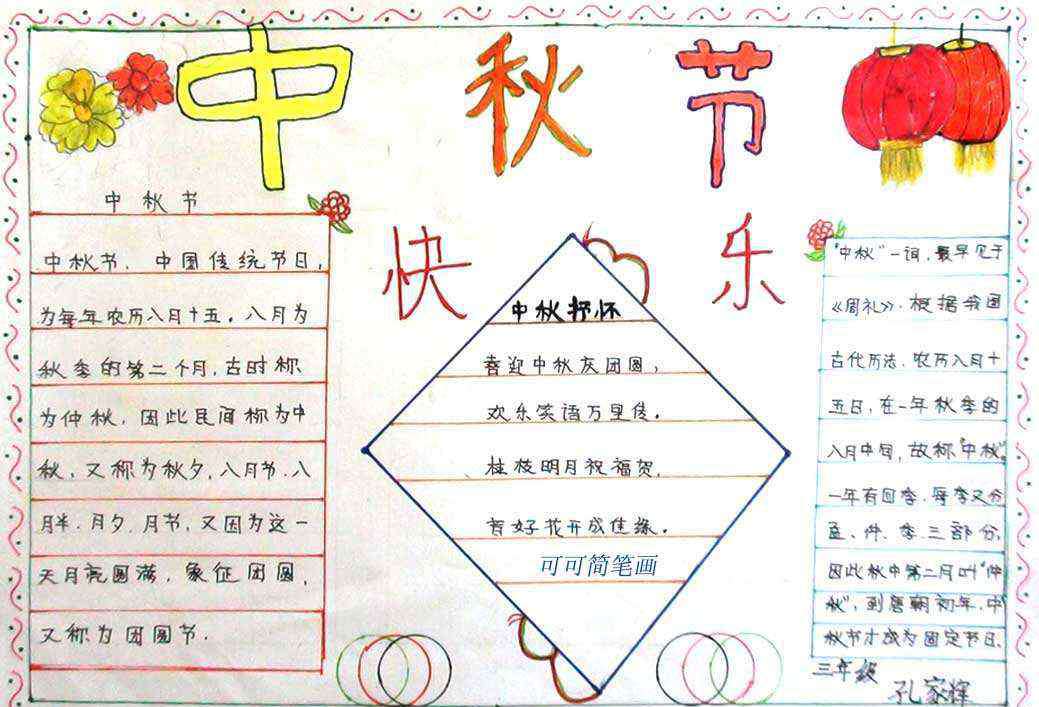 中秋节
快乐
中秋节
中秋节，中国传统节日，
为每年农历八月十五。八月为
秋季的第二个月，古时称
为仲秋，因此民间称为中
秋，又称为秋夕，八月节.八
月半.月夕.月节，又因为这一
天月亮圆满，象征团圆，
又称为团圆节.
中秋抒怀
喜迎中秋庆团圆，
欢乐笑语万里传。
桂枝明月祝福贺，
花好开成佳缘。
可可简笔画
“中秋”一词，最早见于
《周礼》.根据我国
古代历法，农历八月十
五日，在一年秋季的
八月中旬，故称“中秋”。
一年有四季.每季又分
孟、仲、季三部分
因此秋中第二月叫“仲
秋”，到唐朝初年，中
秋节才成为固定节日.
三年级
孔家辉